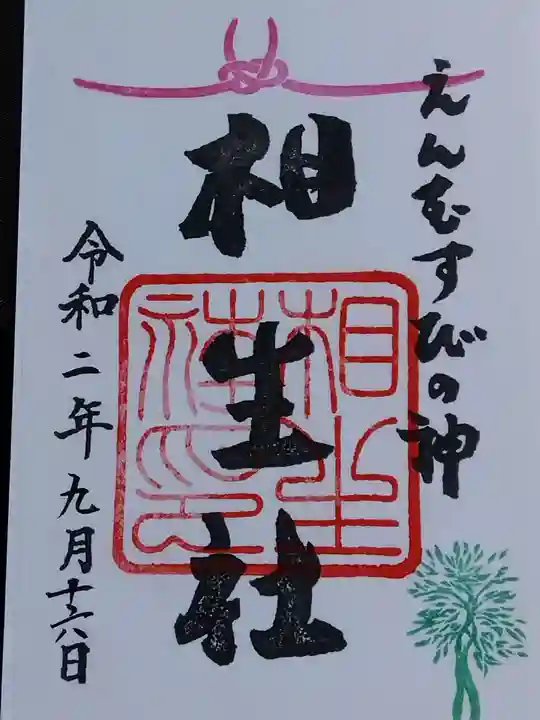 えんむすびの神
相生社
令和二年九月十六日
相生
神印